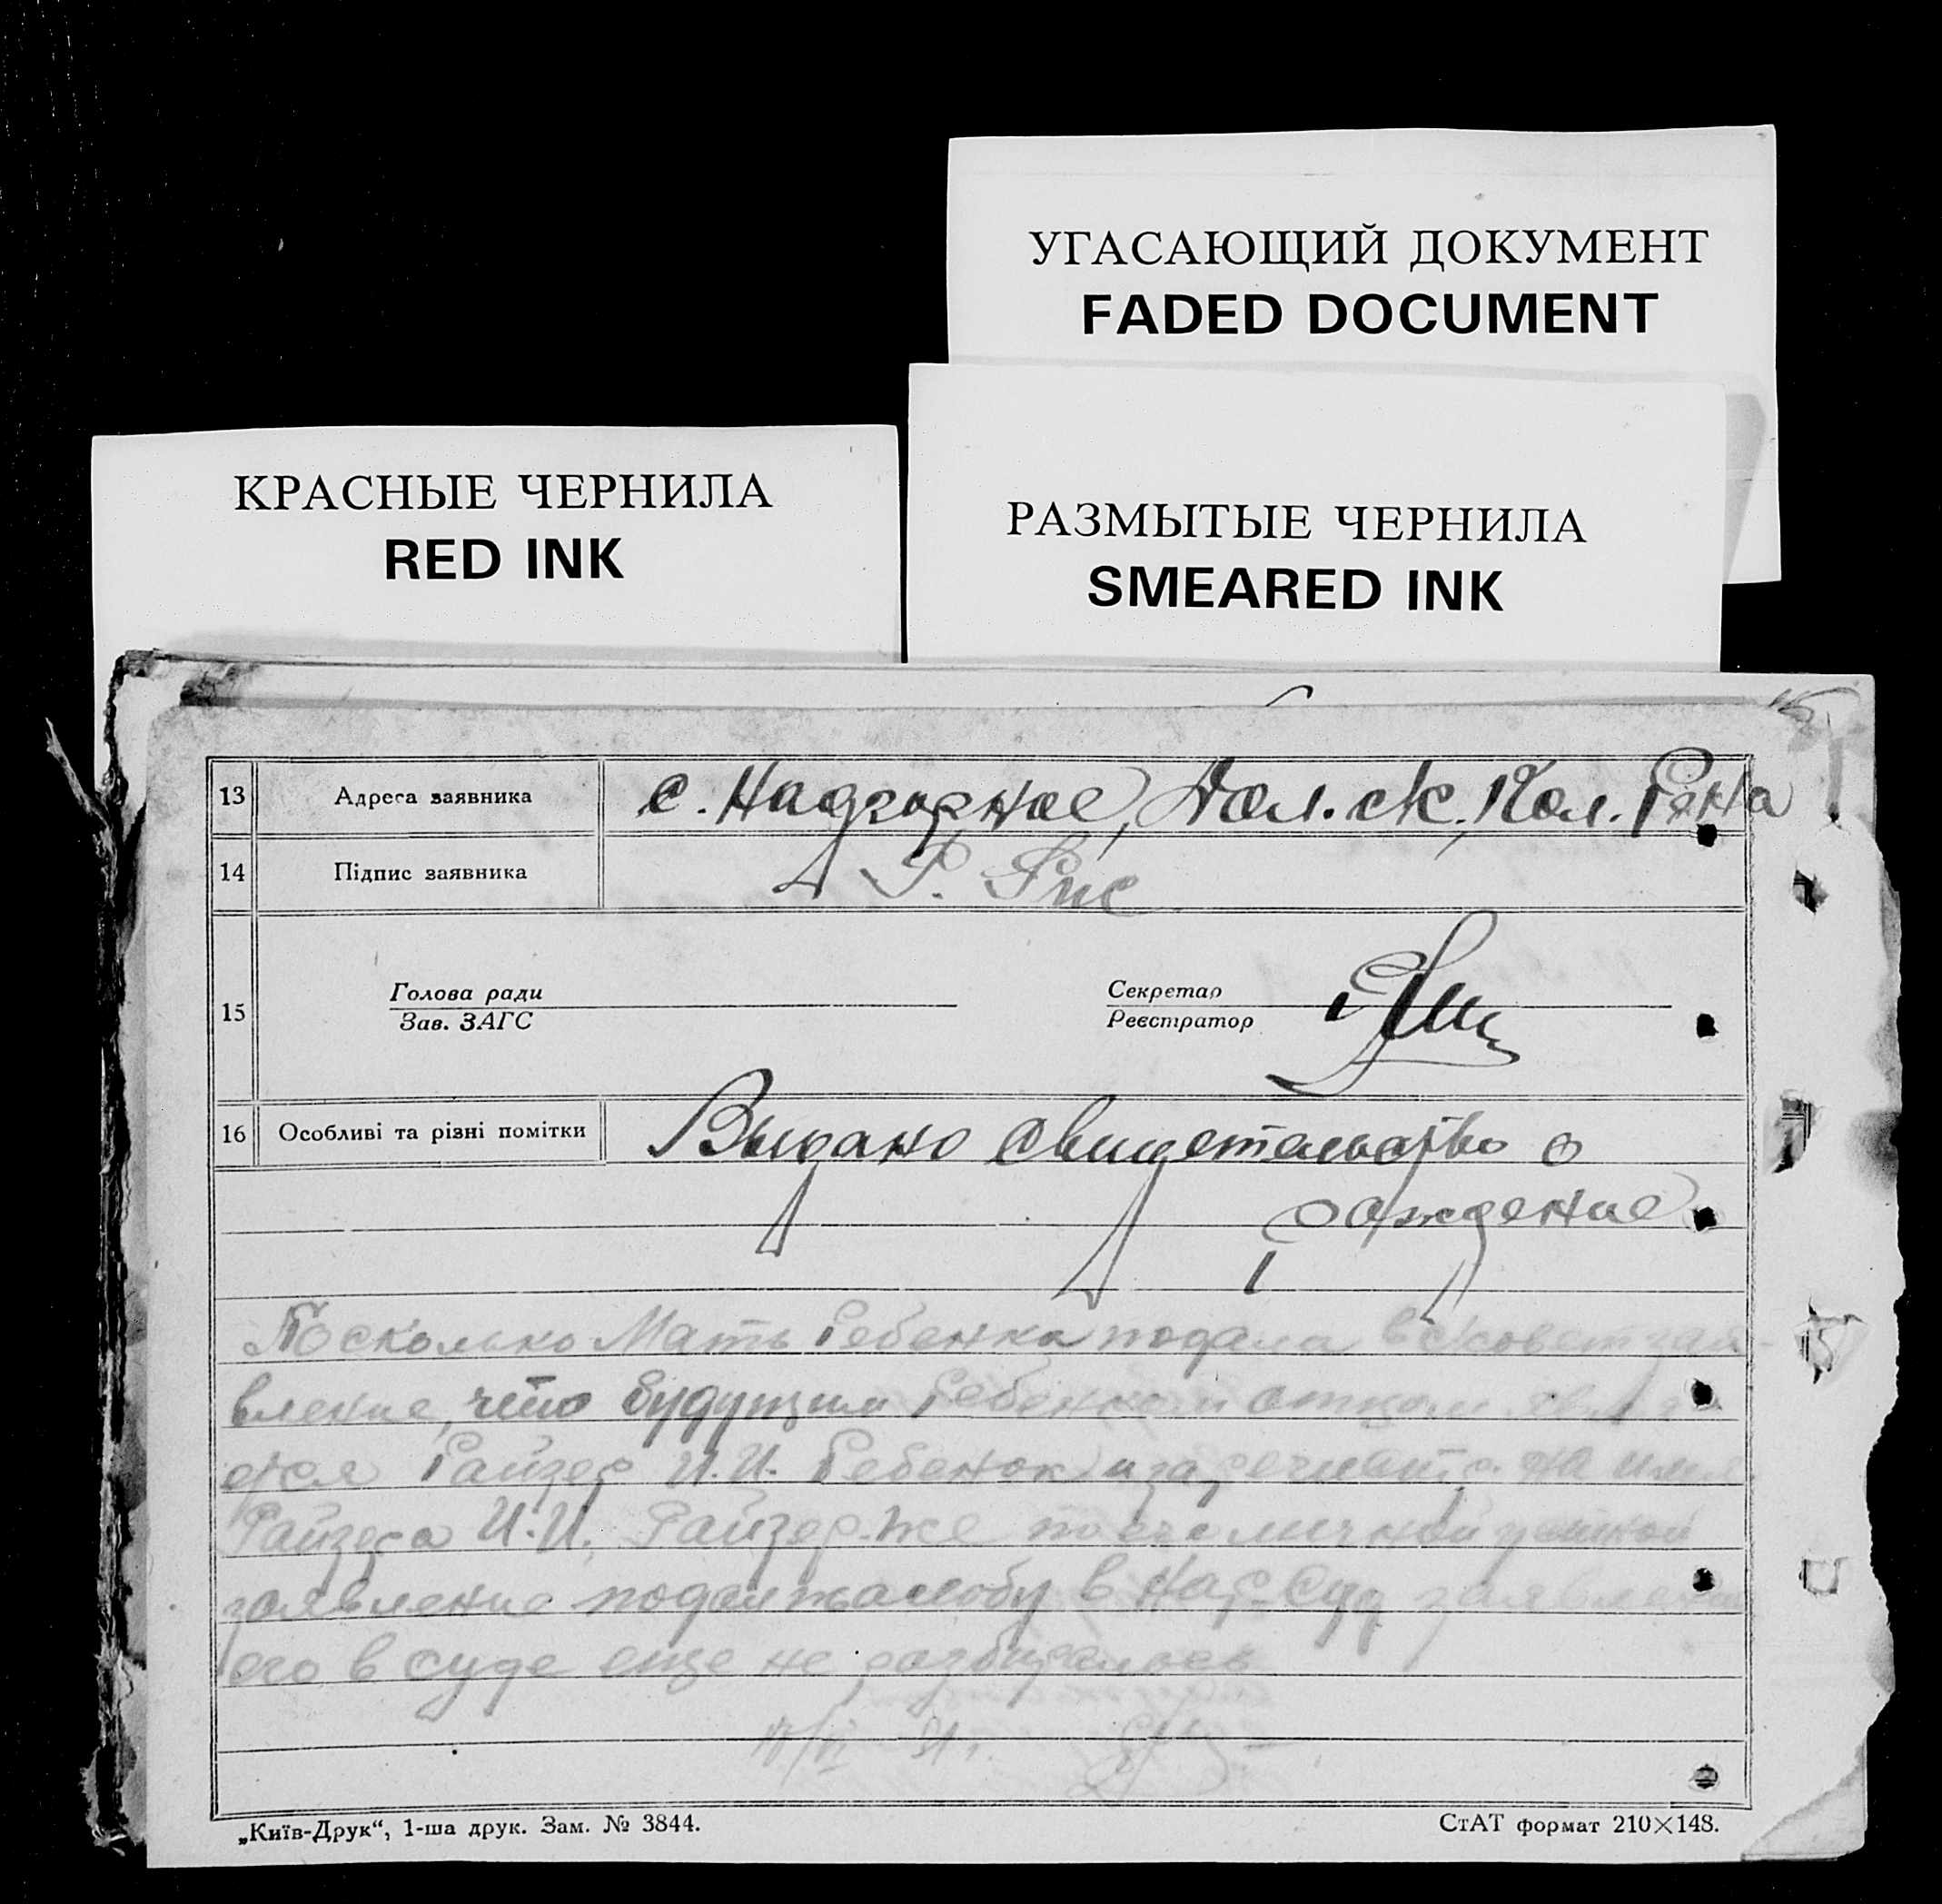 УГАСАЮЩИЙ ДОКУМЕНТ
FADED DOCUMENT
КРАСНЫЕ ЧЕРНИЛА
RED INK
РАЗМЫТЫЕ ЧЕРНИЛА
SMEARED INK
13 Адреса заявника с. Надгорное,
14 Підпис заявника Р. Рис
15 Голова ради Секретар
Зав. ЗАГС Реєстратор
16 Особливі та різні помітки Выдано свидетельство о
рождение
Поскольку Мать Ребенка подала в с/совет зая-
вление, что будущим Ребенком отцом являе
ется Райзер И.И. Ребенок и на имя
Райзера И.И. Райзер же по его личной устной
заявление подал жалобу в Нар-Суд заявление
его в суде еще не разбиралось
„Київ-Друк“, 1-ша друк. Зам. № 3844. СтАТ формат 210×148.